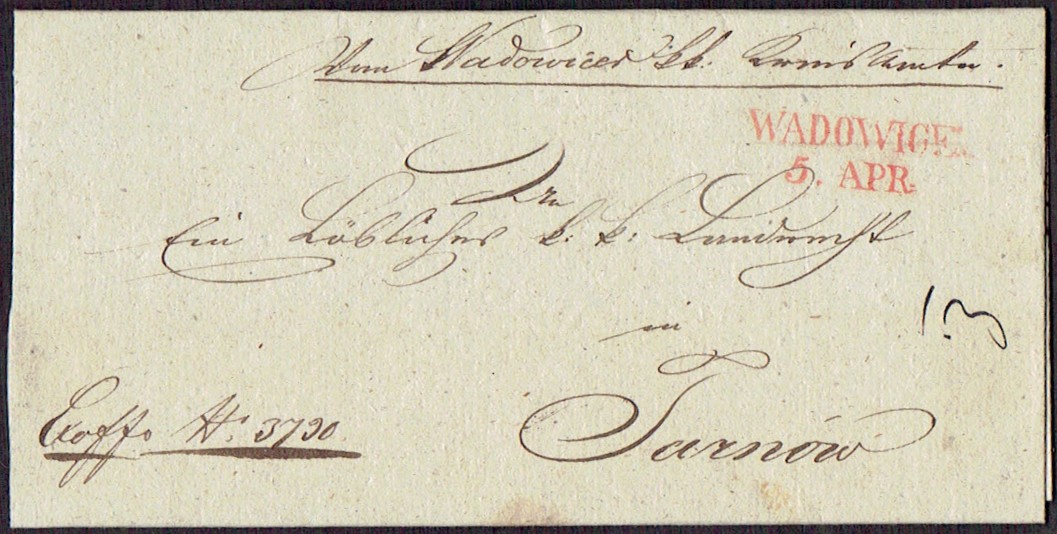 Vom Wadowicer kk. Kreisamte.
WADOWICE
5. APR.
An
Ein Löbliches k. k. Landrecht
in
Tarnow
Exoffo No 3790